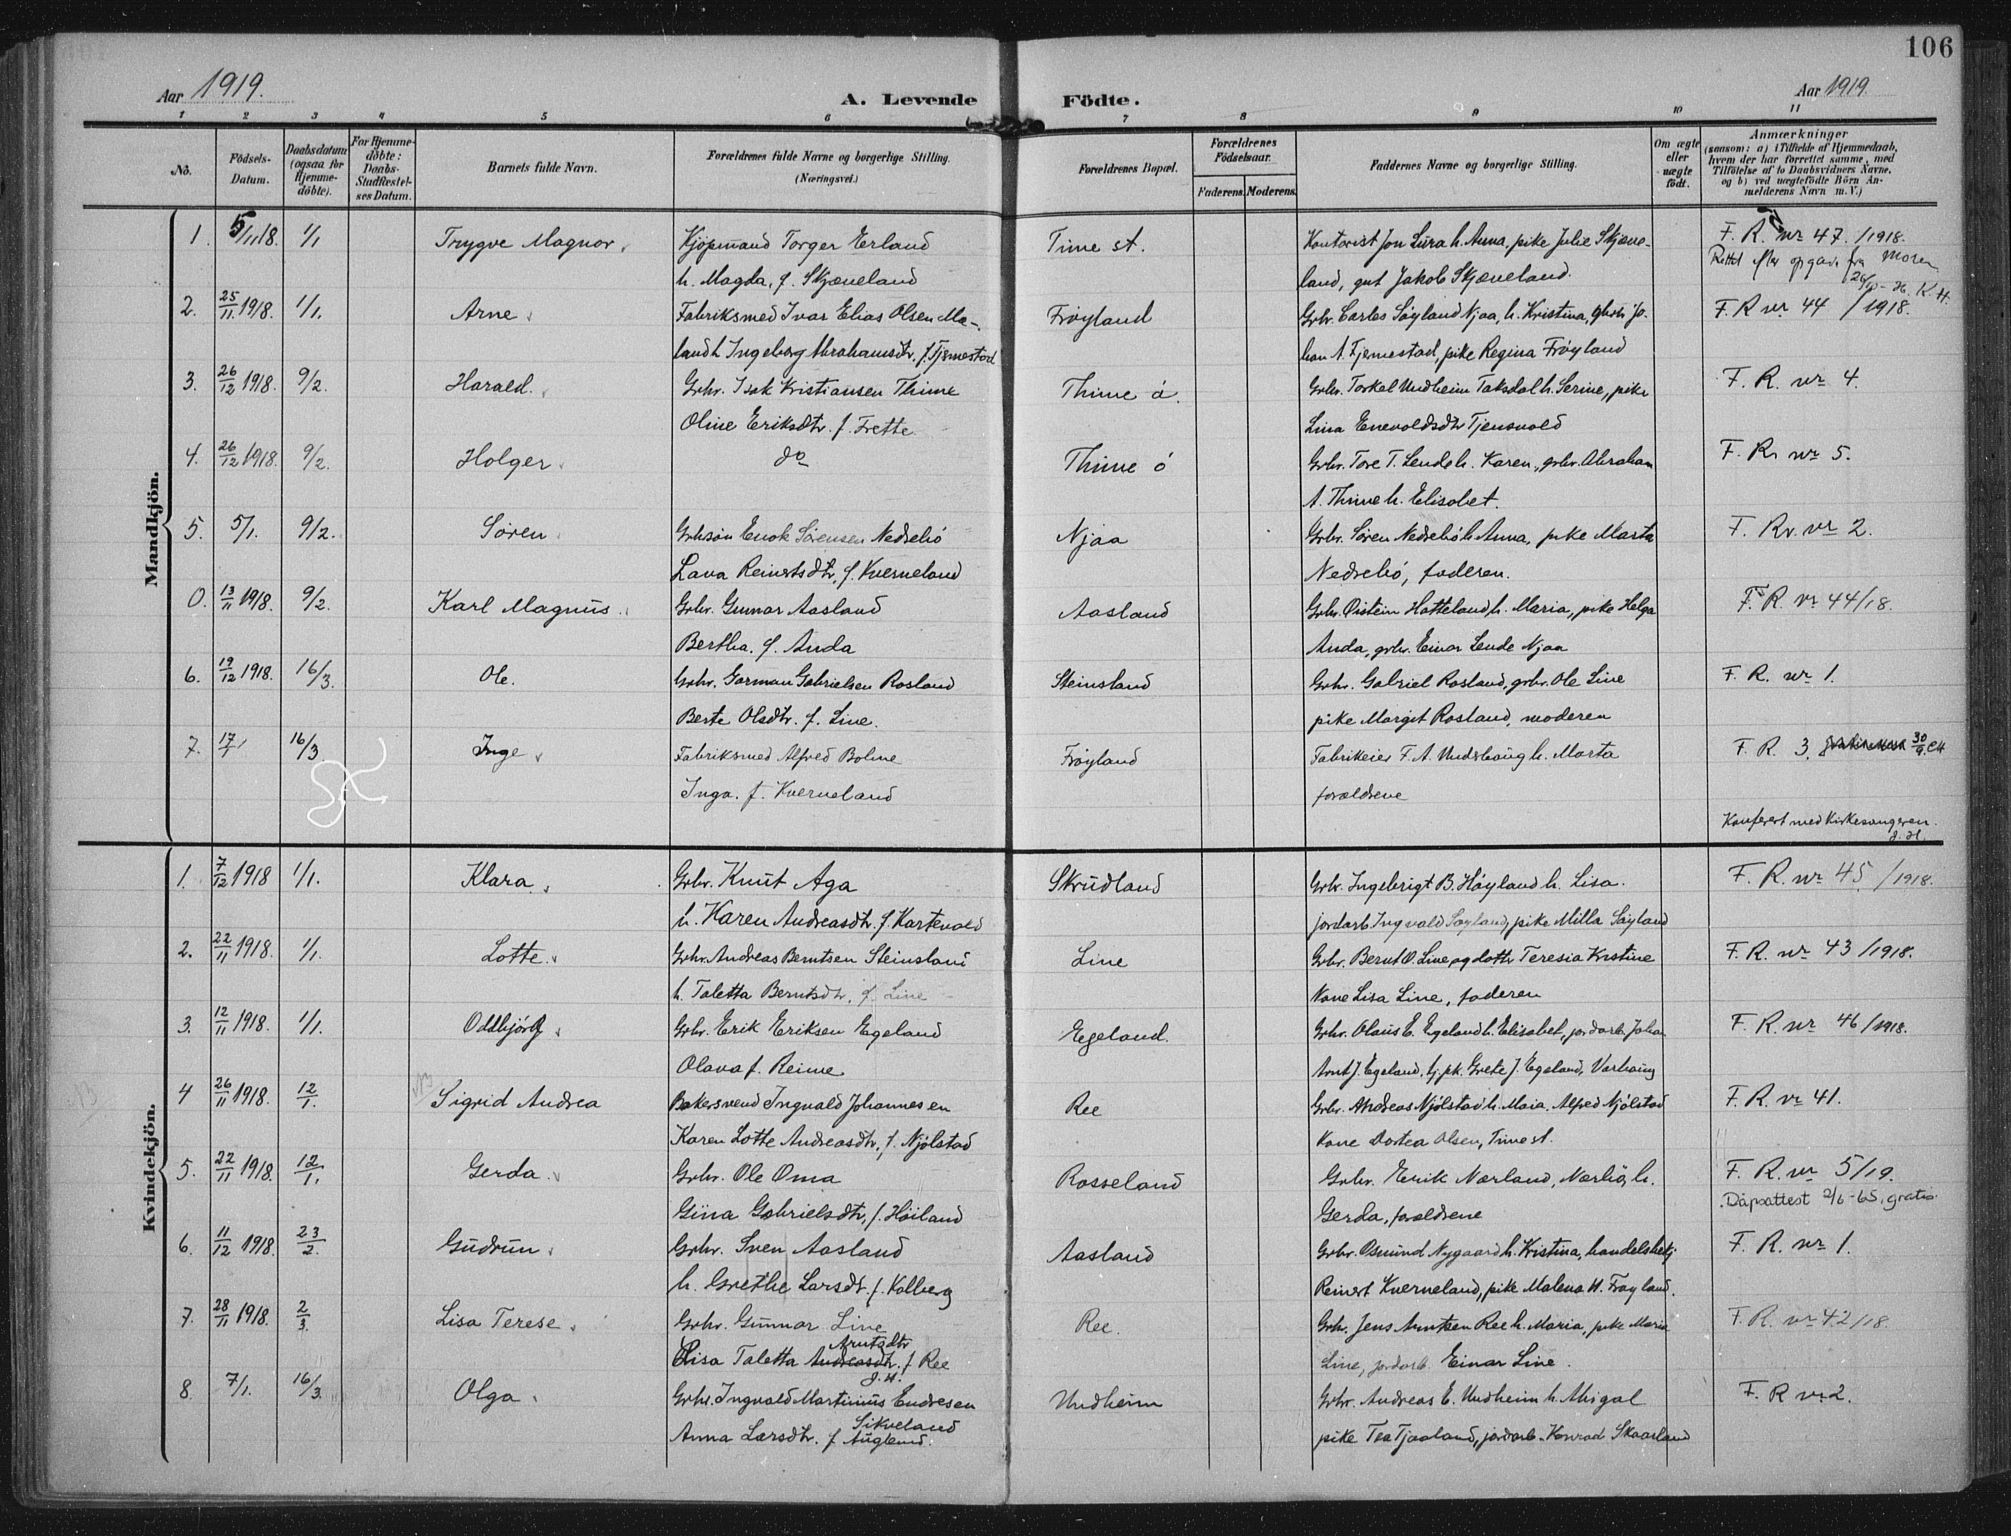 106
Aar 1919.
A. Levende Födte.
Aar 1919.
1 2 3 4 5 6 7 8 9 10 11
No.
Födsels-Datum.
Daabsdatum (ogsaa for Hjemme-döbte).
For Hjemme-döbte: Daabs-Stadfestel-ses Datum.
Barnets fulde Navn.
Forældrenes fulde Navne og borgerlige Stilling. (Næringsvei.)
Forældrenes Bopæl.
Forældrenes Födselsaar.
Faderens. Moderens.
Faddernes Navne og borgerlige Stilling.
Om ægte eller uægte födt.
Anmærkninger (saasom: a) i Tilfælde af Hjemmedaab, hvem der har forrettet samme, med Tilföielse af to Daabsvidners Navne, og b) ved uægtefödte Börn An-melderens Navn m. V.)
Mandkjön.
1. 5/11 18. 1/1 Trygve Magnor. Kjøpmand Torger Erland Time st. Kontorist Jon Lura h. Anna, pike Julie Skjæve-
h. Magda, f. Skjæveland land, gut Jakob Skjæveland.
F. R. nr 47. /1918.
Rettet efter opgave fra moren K. H.
2. 25/11 1918. 1/1. Arne. Fabriksmed Ivar Elias Olsen Mæ- Frøyland Grbr. Carles Søyland Njaa, h. Kristina, grbr. Jo- F. R. nr 44 /1918.
land h Ingeborg Abrahamsdtr. f. Tjemestad han A. Tjemestad, pike Regina Frøyland
3. 26/12 1918. 9/2. Harald. Grbr. Isak Kristiansen Thime Thime ø. Grbr. Torkel Undheim Taksdal h. Serine, pike F. R. nr 4.
Oline Eriksdtr. f. Frette Lina Enevoldsdtr Tjensvold
4. 26/12 1918. 9/2. Holger. do Thime ø Grbr. Tore T. Lende h. Karen, grbr. Abraham F. R. nr 5.
A. Thime h. Elisabet.
5. 5/1. 9/2. Søren Grbsøn Enok Sørensen Nedrebø Njaa Grbr. Søren Nedrebø h Anna, pike Marta F. R. nr 2.
Lava Reinertsdtr, f. Kverneland Nedrebø, faderen.
0. 13/11 1918. 9/2. Karl Magnus. Grbr. Gunnar Aasland Aasland Grbr. Øistein Hatteland h. Maria, pike Helga F. R. nr 44/18.
Bertha. f. Anda Anda, grbr. Einar Lende Njaa
6. 19/12 1918. 16/3. Ole. Grbr. Gorman Gabrielsen Rosland Steinsland Grbr. Gabriel Rosland, grbr. Ole Line F. R. nr 1.
Berte Olsdtr. f. Line. pike Margit Rosland, moderen
7. 17/1 16/3 Inge Fabriksmed Alfred Bolme Frøyland Fabrikeier F. A. Undshaug h. Marta F. R. 3. 30/9
Inga. f. Kverneland forældrene
Konferert med kirkesangeren. J. H.
Kvindekjön.
1. 7/12 1918 1/1. Klara. Grbr. Knut Aga Skrudland Grbr. Ingebrigt B. Høyland h. Lisa. F. R. nr 45 /1918.
h. Karen Andreasdtr. f. Kartevold jordarb. Ingvald Søyland, pike Milla Søyland
2. 22/11 1918. 1/1. Lotte. Grbr. Andreas Berntsen Steinsland Line Grbr. Bernt O. Line og dotter Teresia Kristine F. R. nr 43 /1918.
h. Taletta Berntsdtr. f. Line Kone Lisa Line, faderen
3. 12/11 1918. 1/1. Oddbjørg Grbr. Erik Eriksen Egeland Egeland. Grbr. Olaus E. Egeland h. Elisabet, jordarb. Johan F. R. nr 46 /1918.
Olava f. Reime Arnt J. Egeland, tj. pk. Grete J. Egeland, Varhaug
4 26/11 1918. 12/1. Sigrid Andrea Bakersvend Ingvald Johannesen Ree Grbr. Andreas Njølstad h. Maia. Alfred Njølstad F. R. nr 41.
Karen Lotte Andreasdtr. f. Njølstad Kone Dortea Olsen, Time st.
5. 22/11 1918. 12/1. Gerda. Grbr. Ole Oma Rosseland Grbr. Enrik Nærland, Nærbø, h. F. R. nr 5/19.
Gina Gabrielsdtr, f. Høiland Gerda, forældrene
Dåpsattest 2/6-65. gratis
6. 11/12 1918. 23/2. Gudrun. Grbr. Sven Aasland Aasland Grbr. Osmund Nygaard h. Kristina, handelsbetj F. R. nr 1.
h. Grethe Larsdtr. f. Kalberg Reinert Kverneland, pike Malena H. Frøyland.
7. 28/11 1918. 2/3. Lisa Terese. Grbr. Gunnar Line Ree. Grbr. Jens Arntsen Ree h. Maria, pike Maria F. R. nr 42/18.
Arntsdtr
Elisa Taletta Andreasdtr. f Ree Line, jordarb. Einar Line.
J. H.
8. 7/1. 16/3. Olga. Grbr. Ingvald Martinius Endresen Undheim Grbr. Andreas E. Undheim h. Abigal F. R nr 2.
Sikveland
Anna Larsdtr. f Auglend. pike Tea Tjaaland, jordarb. Konrad Skaarland